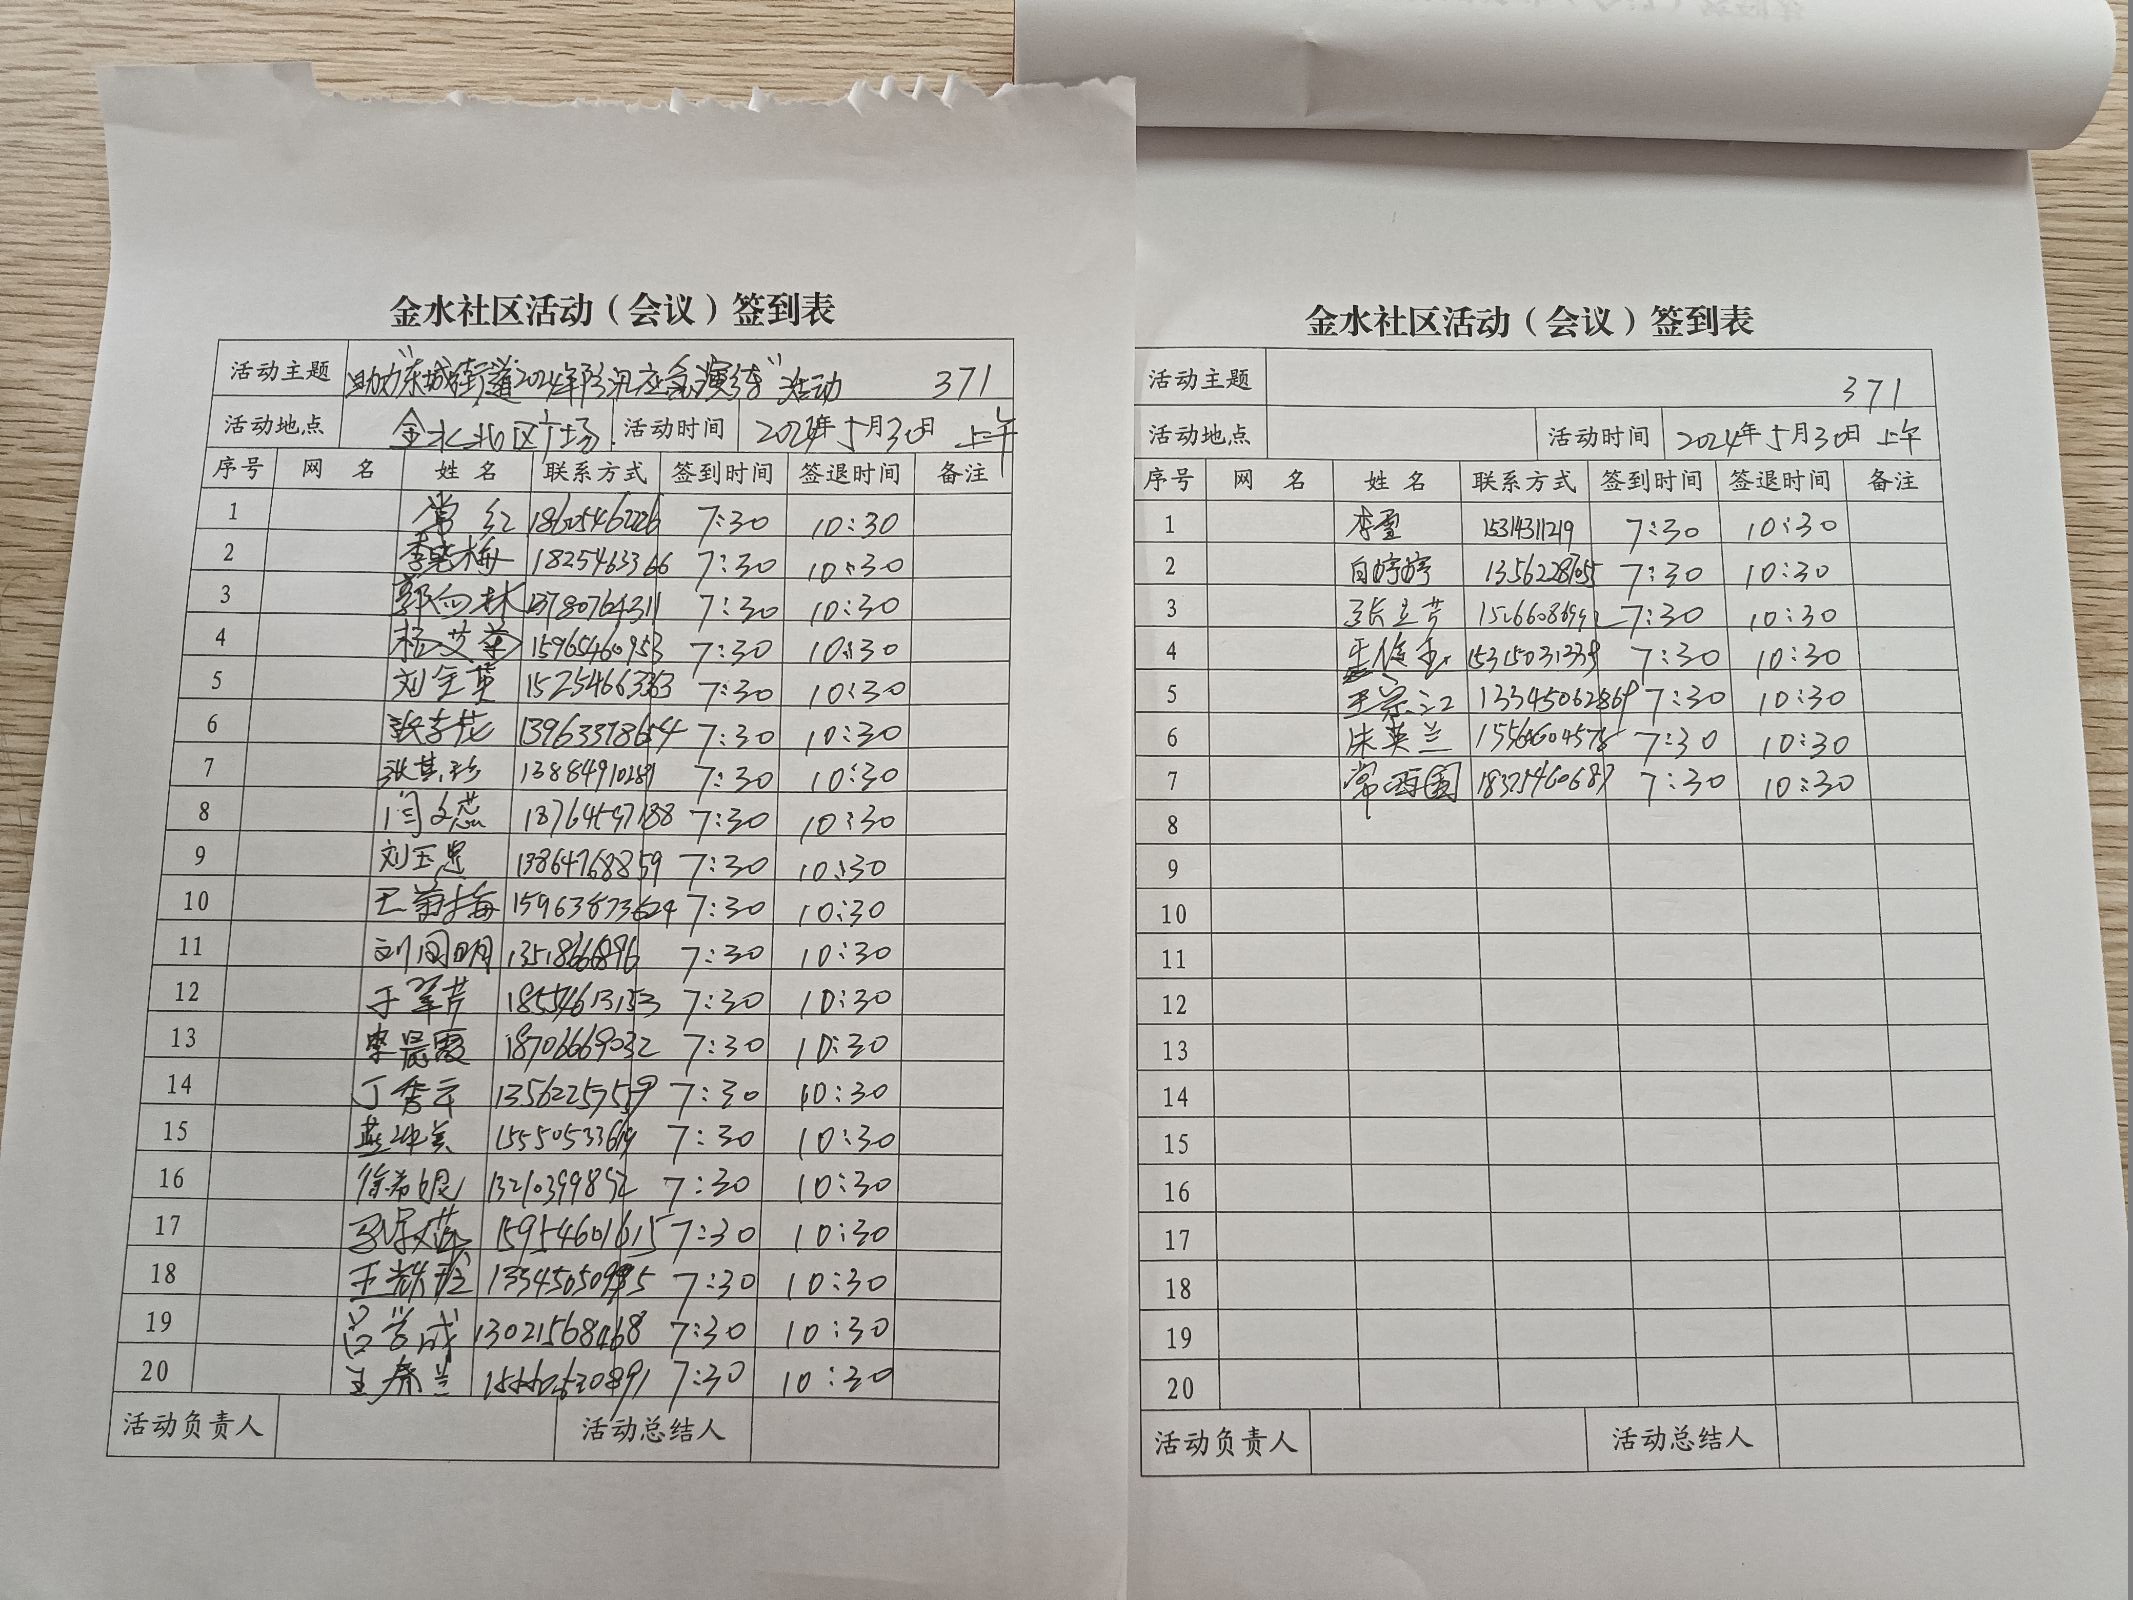 金水社区活动（会议）签到表
活动主题 助力"东城街道2024年防汛应急演练"活动 371
活动地点 金水北区广场 活动时间 2024年5月30日 上午
序号 网 名 姓 名 联系方式 签到时间 签退时间 备注
1 常红 18605462226 7:30 10:30
2 李晓梅 1825463366 7:30 10:30
3 郭向林 13780764311 7:30 10:30
4 杨艾英 15965460953 7:30 10:30
5 刘金英 15254663363 7:30 10:30
6 张李花 13963378654 7:30 10:30
7 张其珍 13884910289 7:30 10:30
8 闫文蕊 18764597188 7:30 10:30
9 刘玉忠 13864768859 7:30 10:30
10 王菊梅 15963873624 7:30 10:30
11 刘国明 7:30 10:30
12 于翠芹 18554613153 7:30 10:30
13 李晨霞 18706669032 7:30 10:30
14 丁秀云 13562257559 7:30 10:30
15 7:30 10:30
16 徐希娘 13210399852 7:30 10:30
17 15954601615 7:30 10:30
18 7:30 10:30
19 吕学成 13021568468 7:30 10:30
20 王春兰 7:30 10:30
活动负责人 活动总结人
金水社区活动（会议）签到表
活动主题 371
活动地点 活动时间 2024年5月30日 上午
序号 网 名 姓 名 联系方式 签到时间 签退时间 备注
1 李雪 15314311219 7:30 10:30
2 白婷婷 13562287055 7:30 10:30
3 张立芹 7:30 10:30
4 15315031339 7:30 10:30
5 王宗江 13345062869 7:30 10:30
6 朱英兰 7:30 10:30
7 常西国 18325460687 7:30 10:30
8
9
10
11
12
13
14
15
16
17
18
19
20
活动负责人 活动总结人